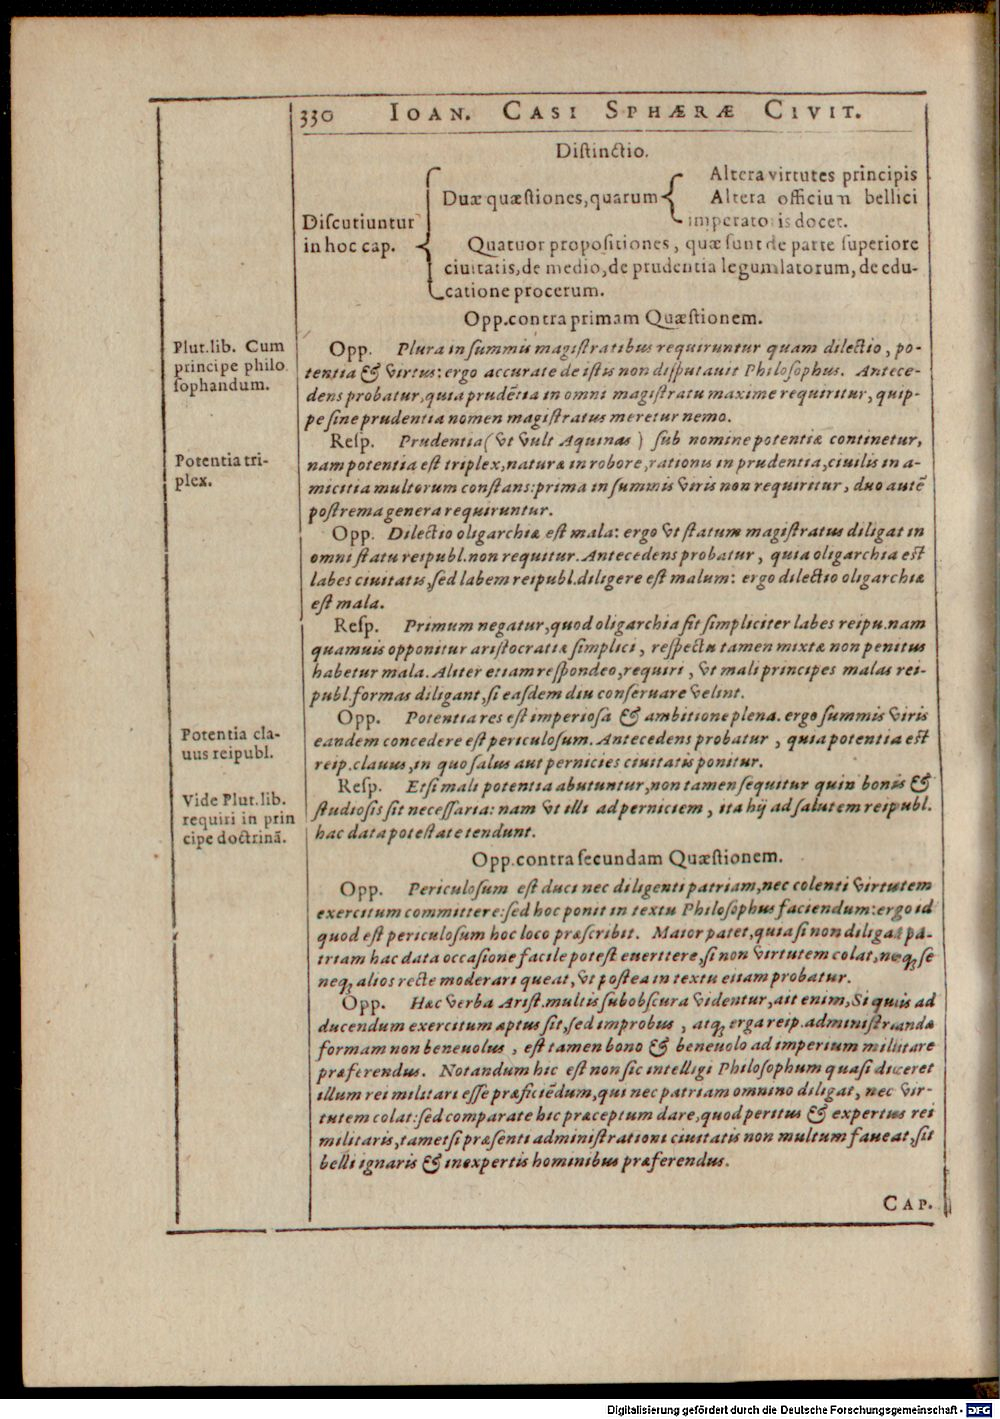 330 IOAN. CASI SPHÆRÆ CIVIT.
Distinctio.
Discutiuntur
in hoc cap.
Duæ quæstiones, quarum
Altera virtutes principis
Altera officium bellici
imperatoris docet.
Quatuor propositiones, quæ sunt de parte superiore
ciuitatis, de medio, de prudentia legumlatorum, de edu-
catione procerum.
Opp. contra primam Quæstionem.
Plut. lib. Cum
principe philo
sophandum.
Opp. Plura in summis magistratibus requiruntur quam dilectio, po-
tentia & virtus: ergo accurate de istis non disputauit Philosophus. Antece-
dens probatur, quia prudẽtia in omni magistratu maxime requiritur, quip-
pe sine prudentia nomen magistratus meretur nemo.
Potentia tri-
plex.
Resp. Prudentia (vt vult Aquinas) sub nomine potentiæ continetur,
nam potentia est triplex, naturæ in robore, rationis in prudentia, ciuilis in a-
micitia multorum constans: prima in summis viris non requiritur, duo autẽ
postrema genera requiruntur.
Opp. Dilectio oligarchiæ est mala: ergo vt statum magistratus diligat in
omni statu reipubl. non requitur. Antecedens probatur, quia oligarchia est
labes ciuitatis, sed labem reipubl. diligere est malum: ergo dilectio oligarchiæ
est mala.
Resp. Primum negatur, quod oligarchia sit simpliciter labes reipu. nam
quamuis opponitur aristocratiæ simplici, respectu tamen mixtæ non penitus
habetur mala. Aliter etiam respondeo, requiri, vt mali principes malas rei-
publ. formas diligant, si easdem diu conseruare velint.
Potentia cla-
uus reipubl.
Opp. Potentia res est imperiosa & ambitione plena. ergo summis viris
eandem concedere est periculosum. Antecedens probatur, quia potentia est
reip. clauus, in quo salus aut pernicies ciuitatis ponitur.
Vide Plut. lib.
requiri in prin
cipe doctrinã.
Resp. Etsi mali potentia abutuntur, non tamen sequitur quin bonis &
studiosis sit necessaria: nam vt illi ad perniciem, ita hij ad salutem reipubl.
hac data potestate tendunt.
Opp. contra secundam Quæstionem.
Opp. Periculosum est duci nec diligenti patriam, nec colenti virtutem
exercitum committere: sed hoc ponit in textu Philosophus faciendum: ergo id
quod est periculosum hoc loco præscribit. Maior patet, quia si non diligat pa-
triam hac data occasione facile potest euertere, si non virtutem colat, neq; se
neq; alios recte moderari queat, vt postea in textu etiam probatur.
Opp. Hæc verba Arist. multis subobscura videntur, ait enim, Si quis ad
ducendum exercitum aptus sit, sed improbus, atq; erga reip. administrandæ
formam non beneuolus, est tamen bono & beneuolo ad imperium militare
præferendus. Notandum hic est non sic intelligi Philosophum quasi diceret
illum rei militari esse præficiẽdum, qui nec patriam omnino diligat, nec vir-
tutem colat: sed comparate hic præceptum dare, quod peritus & expertus rei
militaris, tametsi præsenti administrationi ciuitatis non multum faueat, sit
belli ignaris & inexpertis hominibus præferendus.
CAP.
Digitalisierung gefördert durch die Deutsche Forschungsgemeinschaft - DFG